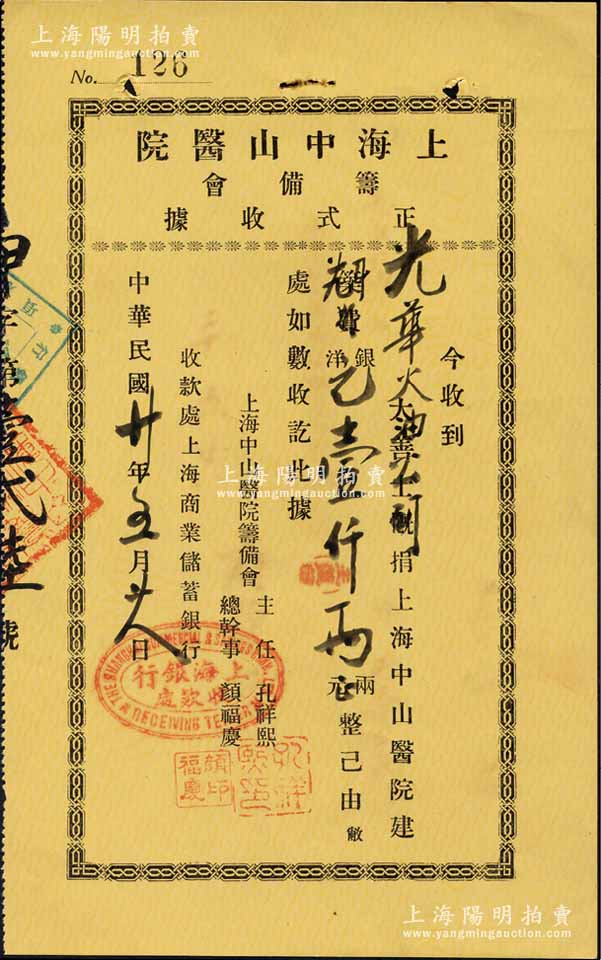 上海陽明拍賣
www.yangmingauction.com
No. 126
上海中山醫院
籌備會
正式收據
今收到
光華火油公司
大善士慨捐上海中山醫院建
築費銀洋壹仟兩元整已由敝
處如數收訖此據
上海中山醫院籌備會
主任 孔祥熙
總幹事 顏福慶
收款處上海商業儲蓄銀行
中華民國廿年五月廿八日
字第壹弍陸號
上海銀行
收款處
RECEIVING TELLER
孔祥熙印
顏福慶印
上海陽明拍賣
www.yangmingauction.com
上海陽明拍賣
www.yangmingauction.com